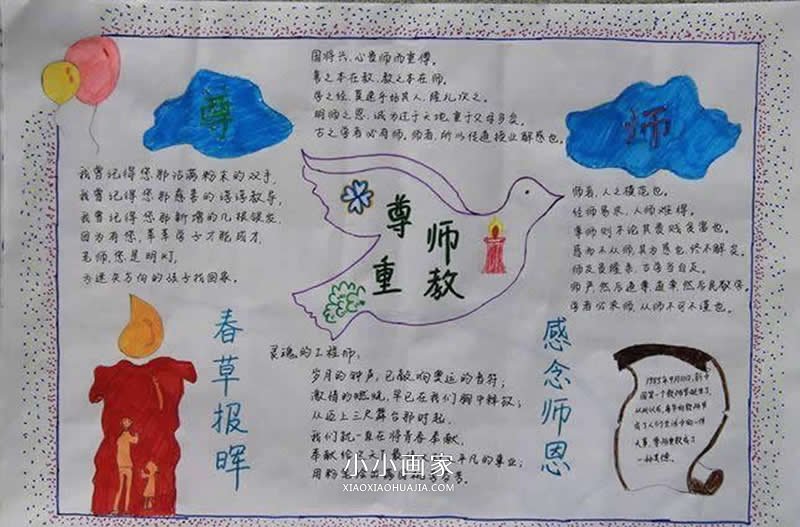 国将兴,心贵师而重傅。
善之本在教,教之本在师。
学之经,莫速乎好其人,隆礼次之。
明师之恩,诚为过于天地,重于父母多矣。
古之学者必有师。师者,所以传道授业解惑也。
尊
师
我曾记得您那沾满粉末的双手,
我曾记得您那慈善的谆谆教导,
我曾记得您那新增的几根银发,
因为有您,莘莘学子才能成才,
老师,您是明灯,
为迷失方向的孩子找回家。
尊师
重教
师者,人之模范也。
经师易求,人师难得。
尊师则不论其贵贱贫富也。
惑而不从师,其为惑也,终不解矣。
师严然后道尊,道尊然后民敬学。
学者必求师,从师不可不谨也。
春草报晖
灵魂的工程师:
岁月的钟声,已敲响奥运的音符;
激情的燃烧,早已在我们胸中释放;
从迈上三尺舞台那时起,
我们就一直在将青春奉献,
感念师恩
1985年9月10日,新中
国第一个教师节诞生了,
从此以后,
小小画家
XIAOXIAOHUAJIA.COM